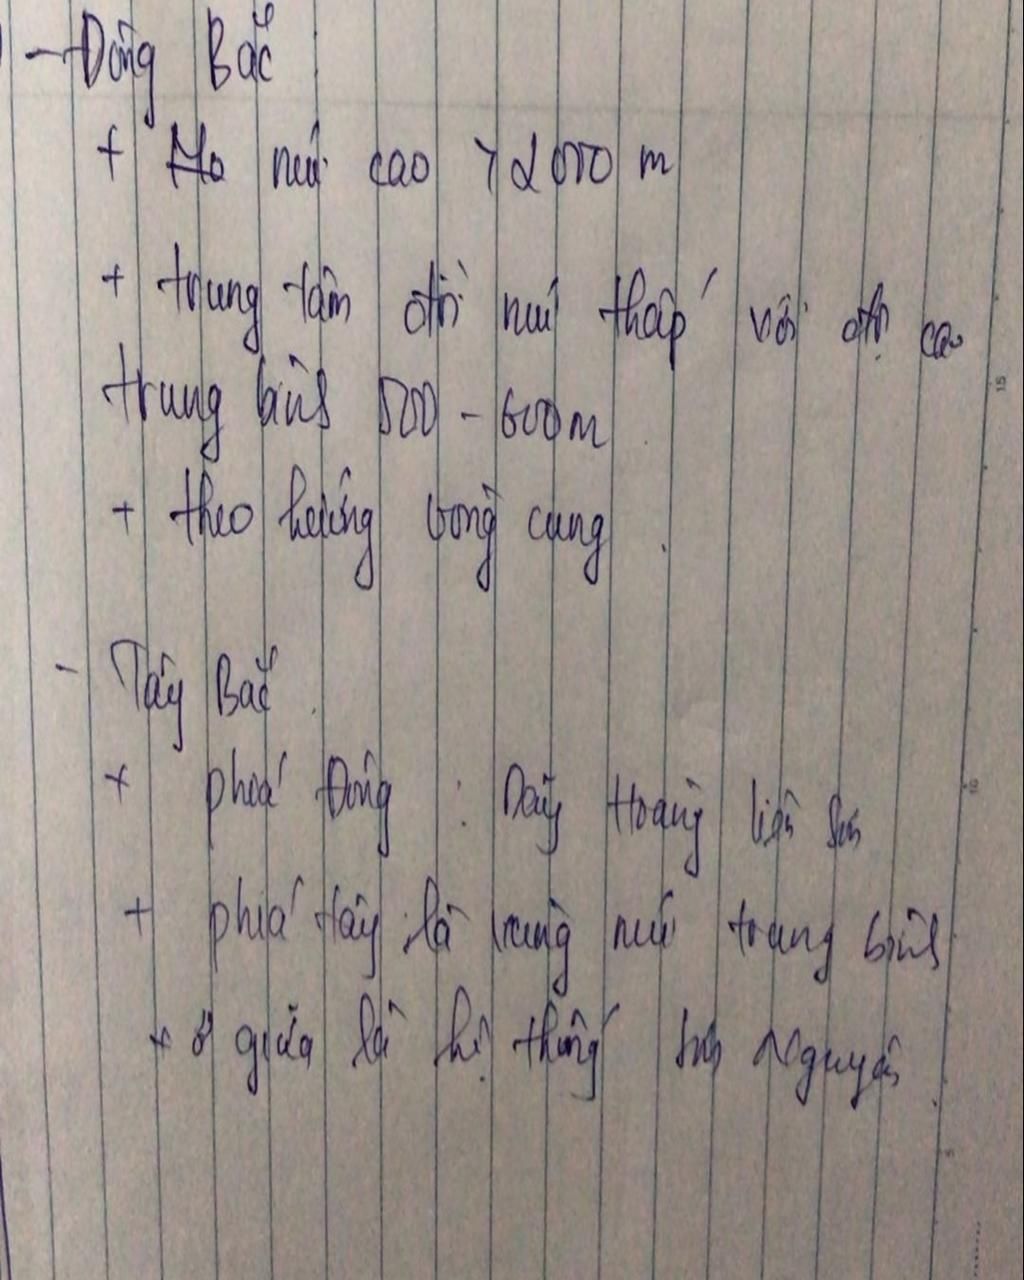 - Đông Bắc
+ núi cao > 2000 m
+ trung tâm đồi núi thấp với độ cao
trung bình 500 - 600m
+ theo hướng vòng cung.
- Tây Bắc.
+ phía Đông : Dãy Hoàng liên Sơn
+ phía tây là vùng núi trung bình
+ ở giữa là hệ thống Sơn Nguyên.